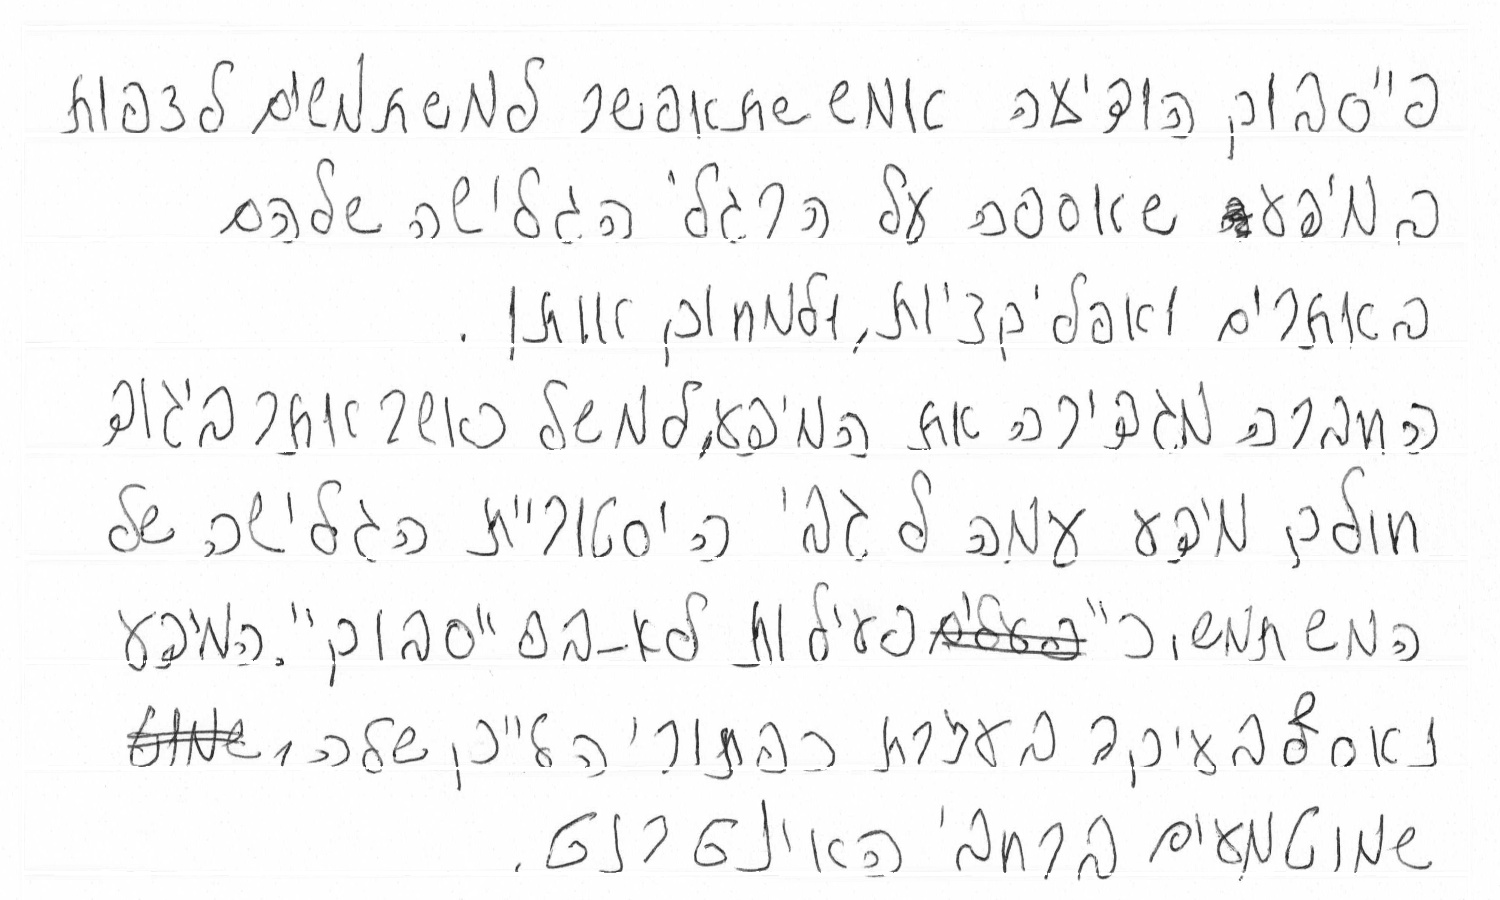 פייסבוק הודיעה אמש שתאפשר למשתמשים לצפות
במידע שאספה על הרגלי הגלישה שלהם
באתרים ואפליקציות, ולמחוק אותו.
החברה מגדירה את המידע, למשל כאשר אתר ביגוד
חולק מידע עמה לגבי היסטוריית הגלישה של
המשתמש, כ"פעילות לא-בפייסבוק". המידע
נאסף בעיקר בעזרת כפתורי הלייק שלה,
שמוטמעים ברחבי האינטרנט.